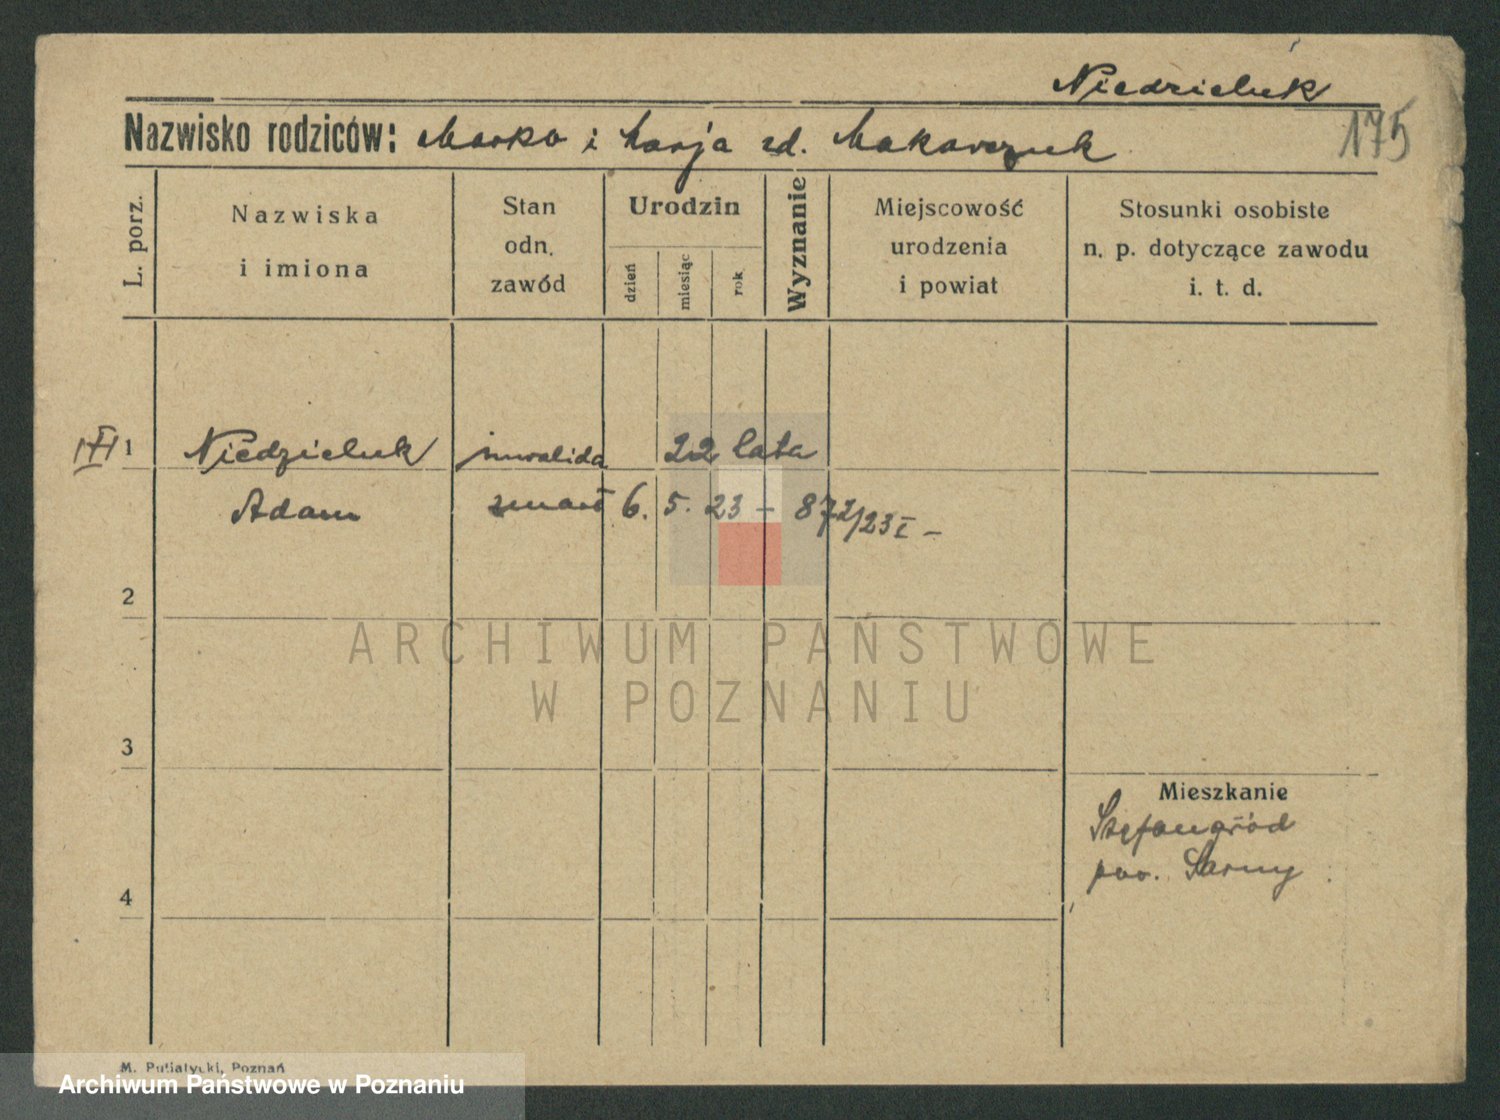 Niedzieluk
Nazwisko rodziców: Marko i Marja zd. Makarczuk
175
L. porz.
Nazwiska
i imiona
Stan
odn.
zawód
Urodzin
dzień
miesiąc
rok
Wyznanie
Miejscowość
urodzenia
i powiat
Stosunki osobiste
n. p. dotyczące zawodu
i. t. d.
1 Niedzieluk inwalida 22 lata
Adam zmarł 6. 5. 23 – 872/23 I –
2
3
Mieszkanie
Stefangród
pow. Sarny
4
M. Putiatycki, Poznań
ARCHIWUM PAŃSTWOWE
W POZNANIU
Archiwum Państwowe w Poznaniu